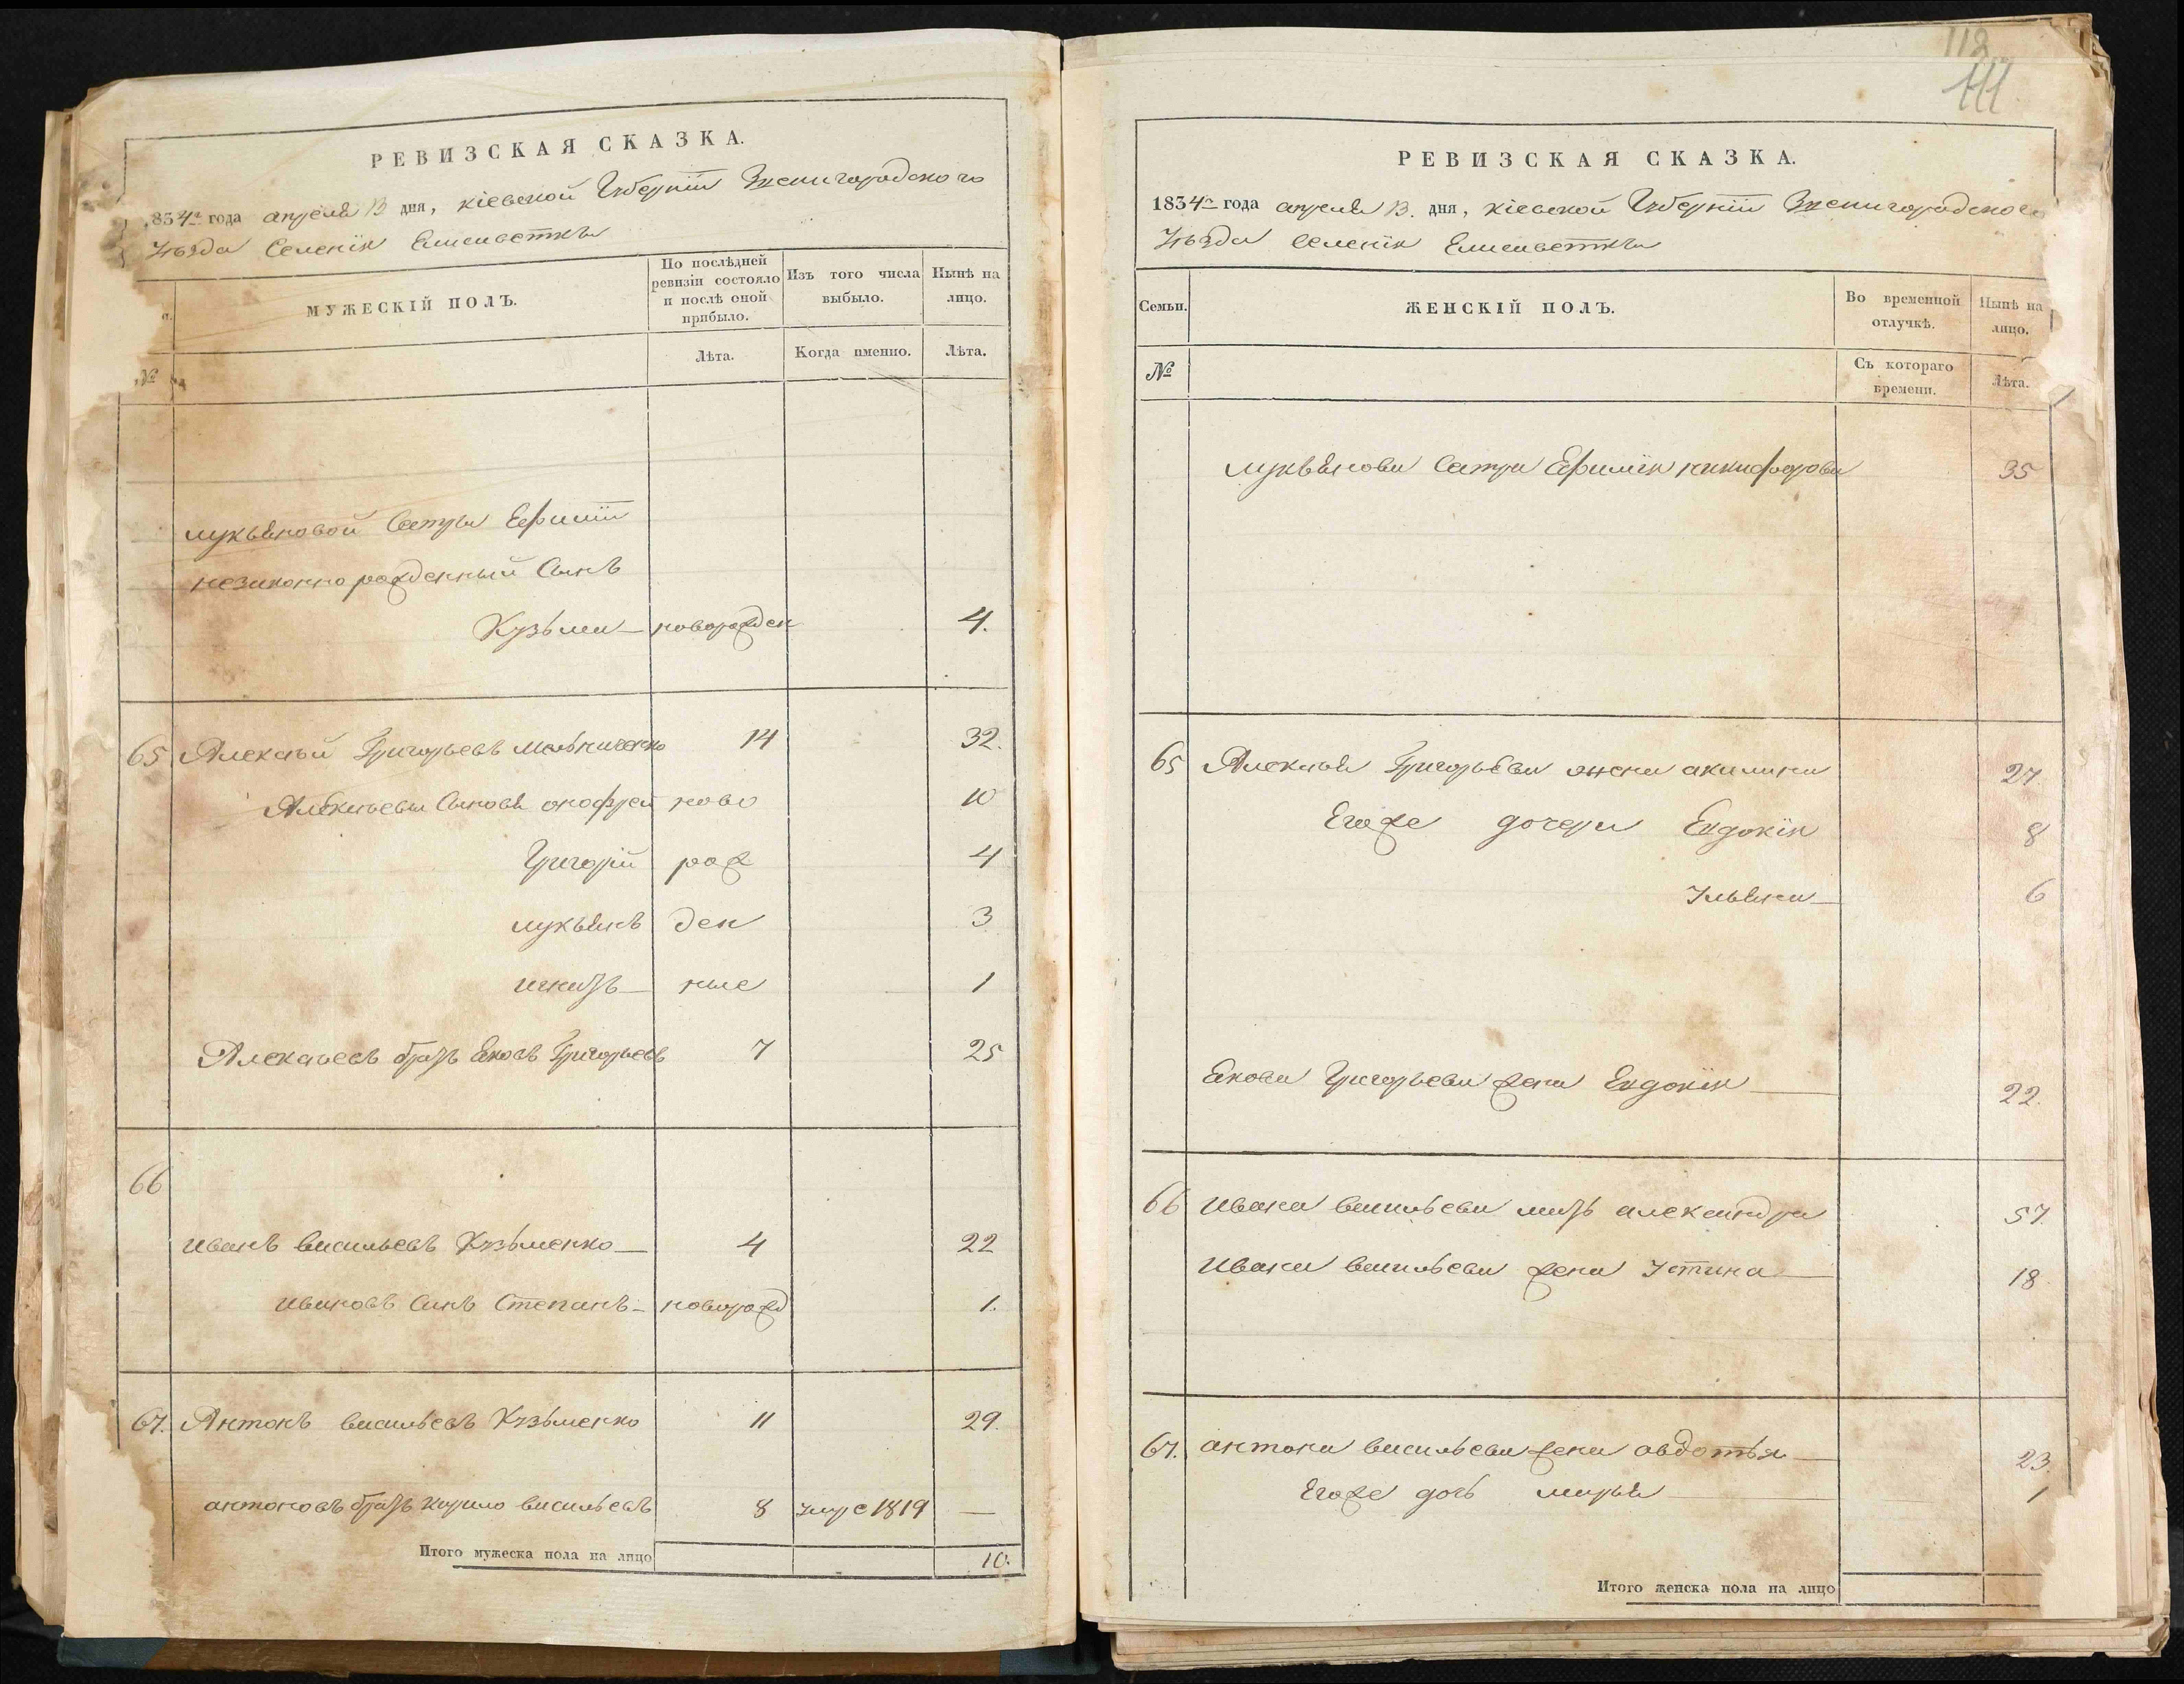 РЕВИЗСКАЯ СКАЗКА.
1834го года апреля 13 дня, кіевской Губерніи Звенигородского
Уѣзда Селенія Елисаветки
МУЖЕСКІЙ ПОЛЪ.
По послѣдней ревизіи состояло и послѣ оной прибыло.
Изъ того числа выбыло.
Нынѣ на лицо.
№
Лѣта.
Когда именно.
Лѣта.
лукьяновой Сестры Ефиміи
незаконно рожденный Сынъ
Кузьма — новорожден 4.
65 Алексѣй Григорьевъ Мельниченко 14 32.
Алексѣевы Сыновя онофрей ново 10
Григорій рож 4
лукьянъ ден 3
игнатъ — ные 1
Алексѣевъ братъ Яковъ Григорьевъ 7 25
66
иванъ васильевъ Кузьменко — 4 22
ивановъ Сынъ Степанъ — новорожд 1.
67. Антонъ васильевъ Кузьменко 11 29.
антоновъ братъ кирило васильевъ 8 умре 1819 —
Итого мужеска пола на лицо 10.
112
111
РЕВИЗСКАЯ СКАЗКА.
1834го года апреля 13. дня, кіевской Губерніи Звенигородского
Уѣзда Селенія Елисаветки
Семьи.
ЖЕНСКІЙ ПОЛЪ.
Во временной отлучкѣ.
Нынѣ на лицо.
№
Съ котораго времени.
Лѣта.
лукьянова Сестра Ефимия никифорова 35
65 Алексѣя Григорьева жена акилина 27.
Егоже дочери Евдокія 8
Ульяна — 6
Якова Григорьева жена Евдокія — 22.
66 ивана васильева мать александра 57.
ивана васильева жена Устина — 18
67. антона васильева жена авдотья — 23.
Егоже дочь марья — 1
Итого женска пола на лицо